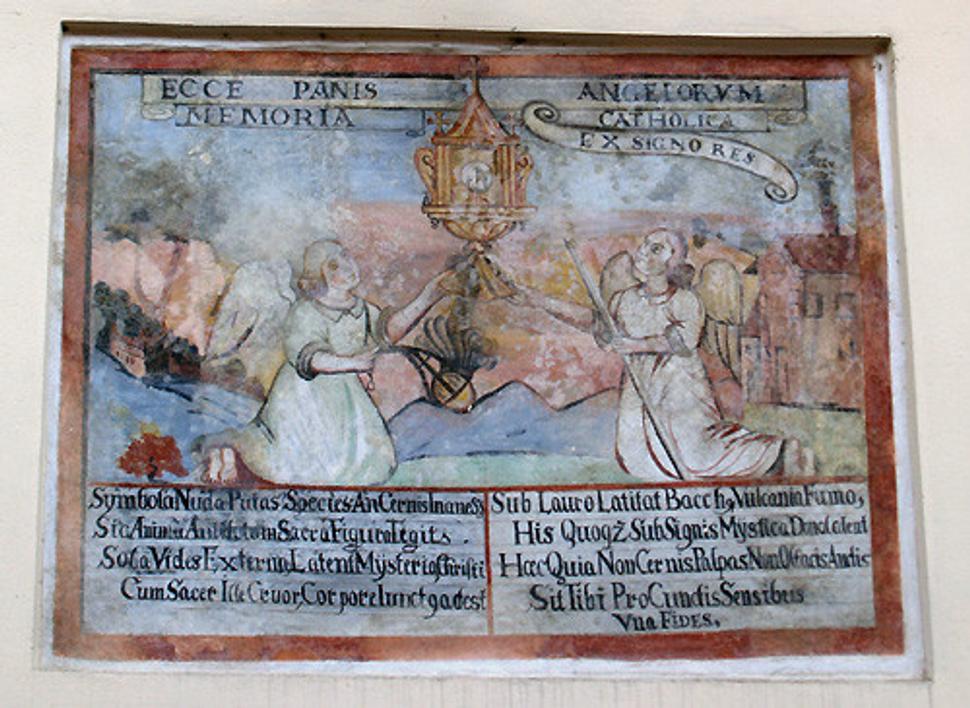 ECCE PANIS ANGELORVM
MEMORIA CATHOLICA
EX SIGNO RES
Symbola Nuda Putas? Species An Cernis Inanes?
Sic Sacra Figura Tegit .
Sola Vides Externa Latent Mysteria Christi
Cum Sacer Ille Cruor, Corpore Iunctq adest
Sub Lauro Latitat Bacchq, Vulcania Fumo,
His Quoqz Sub Signis Mystica Dona latent
Hæc Quia Non Cernis Palpas Non Olfacis Audis
Sit Tibi Pro Cunctis Sensibus
Vna FIDES.